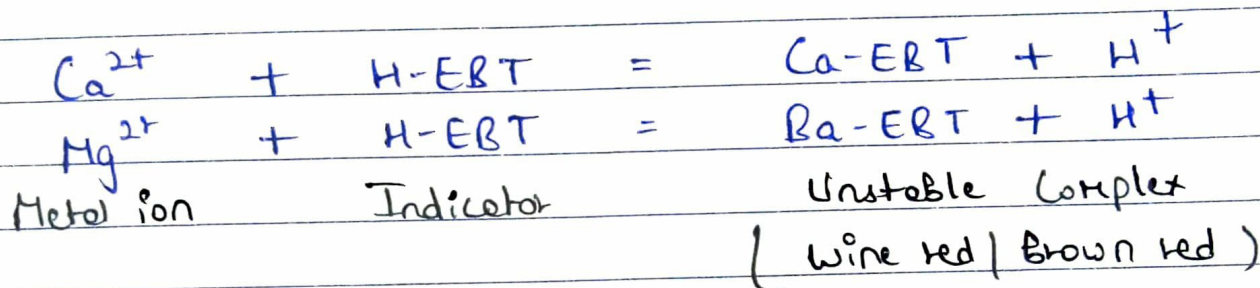 Ca²⁺ + H-EBT = Ca-EBT + H⁺
Mg²⁺ + H-EBT = Ba-EBT + H⁺
Metal ion Indicator Unstable Complex
( Wine red | Brown red )